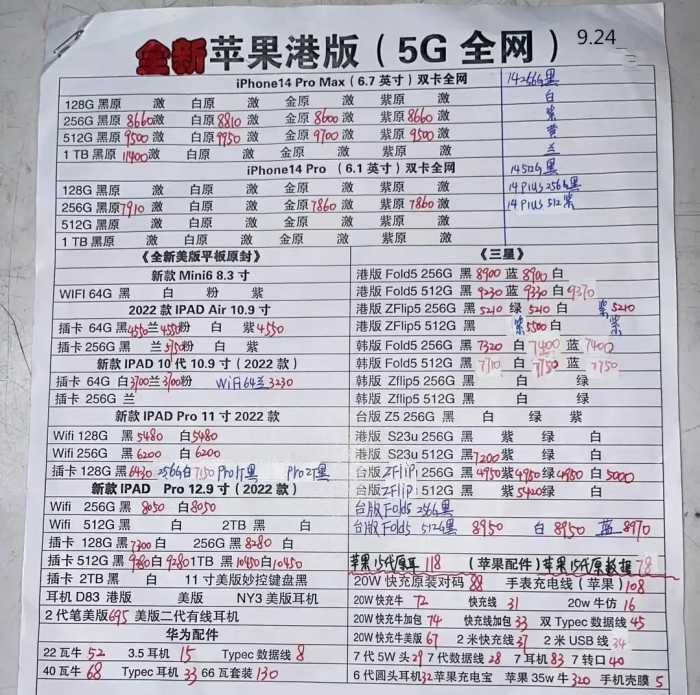 全新苹果港版（5G 全网） 9.24
iPhone14 Pro Max（6.7 英寸）双卡全网
128G 黑原 激 白原 激 金原 激 紫原 激
256G 黑原 8660 激 白原 8810 激 金原 8600 激 紫原 8660 激
512G 黑原 9500 激 白原 9950 激 金原 9700 激 紫原 9500 激
1 TB 黑原 11400 激 白原 激 金原 激 紫原 激
iPhone14 Pro （6.1 英寸）双卡全网
128G 黑原 激 白原 激 金原 激 紫原 激
256G 黑原 7910 激 白原 激 金原 7860 激 紫原 7860 激
512G 黑原 激 白原 激 金原 激 紫原 激
1 TB 黑原 激 白原 激 金原 激 紫原 激
14 256G 黑
白
紫
黄
兰
14 512G 黑
14 Plus 256G 黑
14 Plus 512 紫
《全新美版平板原封》
新款 Mini6 8.3 寸
WIFI 64G 黑 白 粉 紫
2022 款 IPAD Air 10.9 寸
插卡 64G 黑 4550 兰 4550 粉 白 紫 4550
插卡 256G 黑 兰 5750 粉 白 紫
新款 IPAD 10 代 10.9 寸（2022 款）
插卡 64G 白 3700 兰 3700 粉 WiFi 64 兰 3230
插卡 256G 兰
新款 IPAD Pro 11 寸 2022 款
Wifi 128G 黑 5480 白 5480
Wifi 256G 黑 6200 白 6200
插卡 128G 黑 6430 256G 白 7150 Pro 1T 黑 Pro 2T 黑
新款 IPAD Pro 12.9 寸（2022 款）
Wifi 256G 黑 8050 白 8050
Wifi 512G 黑 白 2TB 黑 白
插卡 128G 黑 7300 白 256G 黑 8280 白
插卡 512G 黑 9280 白 9280 1TB 黑 10450 白 10450
插卡 2TB 黑 白 11 寸美版妙控键盘黑
耳机 D83 港版 美版 NY3 美版耳机
2 代笔美版 695 美版二代有线耳机
华为配件
22 瓦牛 52 3.5 耳机 15 Typec 数据线 8
40 瓦牛 68 Typec 耳机 33 66 瓦套装 130
《三星》
港版 Fold5 256G 黑 8900 蓝 8900 白
港版 Fold5 512G 黑 9230 蓝 9330 白 9370
港版 ZFlip5 256G 黑 5210 绿 5210 白 紫 5210
港版 ZFlip5 512G 黑 紫 5500 白 紫
韩版 Fold5 256G 黑 7320 白 7400 蓝 7400
韩版 Fold5 512G 黑 7710 白 7750 蓝 7750
韩版 Zflip5 256G 黑 白 绿
韩版 Zflip5 512G 黑 白 绿
台版 Z5 256G 黑 白 绿 紫
港版 S23u 256G 黑 紫 绿 白
港版 S23u 512G 黑 7200 紫 绿 白
台版 ZFliPi 256G 黑 4950 紫 4950 绿 4950 白 5000
台版 ZFliPi 512G 黑 紫 5420 绿 白
台版 Fold5 256G 黑
台版 Fold5 512G 黑 8950 白 8950 蓝 8970
苹果15代原耳 118 （苹果配件）苹果15代原数据 78
20W 快充原装对码 88 手表充电线（苹果）108
20W 快充牛 72 快充线 31 20w 牛仿 16
20W 快充牛加包 74 快充线加包 33 双 Typec 数据线 45
20W 快充牛美版 67 2 米快充线 37 2 米 USB 线 34
7 代 5W 头 29 7 代数据线 28 7 耳机 83 7 转口 40
6 代圆头耳机 32 苹果充电宝 苹果 35w 牛 320 手机壳膜 5